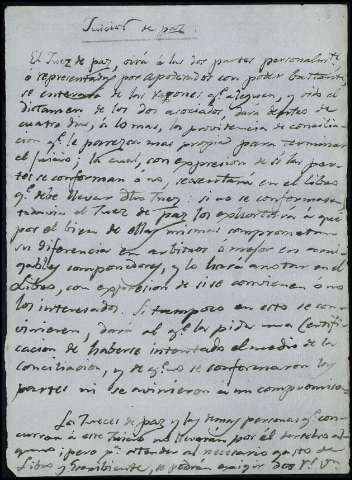 Juicios de paz.
El Juez de paz, oirá á las dos partes personalmte
ó representadas por apoderados con poder bastante
se enterará de las razones q.e aleguen, y oido el
dictamen de los dos asociados, dará dentro de
cuatro dias, á lo mas, la providencia de concilia-
cion q.e le parezca mas propia para terminar
el juicio; la cual, con expresion de si las par-
tes se conforman ó no, se sentará en el libro
q.e debe llevar dho Juez: si no se conformaren
el Juez de paz los exhortará á que
por el bien de ellas mismas comprometan
su diferencia en arbitros ó mejor en ami-
gables componedores, y lo hará anotar en el
Libro, con expresion de si se convienen ó no
los interesados. Si tampoco en esto se con-
vinieren, dará al q.e la pida una Certifi-
cacion de haberse intentado el medio de la
conciliacion, y de q.e no se conformaron las
partes ni se avinieron á un compromiso.
Los Jueces de paz y las demas personas q.e con-
curran á este Juicio no llevarán por él derechos al-
gunos; pero p.a atender al necesario gasto de
Libro y Escribiente, se podrán exigir dos r.s v.n